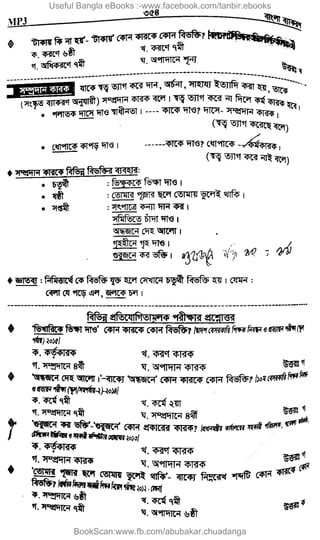 Useful Bangla eBooks :-www.facebook.com/tanbir.ebooks
MP3 ৩৫৪ বাংলা ব্যাকরণ
'টাকায় কি না হয়'- 'টাকায়' কোন কারকে কোন বিভক্তি?
ক. করণে ৬ষ্ঠী খ. করণে ৭মী
গ. অধিকরণে ৭মী ঘ. অপাদানে শূন্য উত্তরঃ খ
সম্প্রদান কারক যাকে স্বত্ব ত্যাগ করে দান, অর্চনা, সাহায্য ইত্যাদি করা হয়, তাকে
(সংস্কৃত ব্যাকরণ অনুযায়ী) সম্প্রদান কারক বলে। স্বত্ব ত্যাগ করে না দিলে কর্ম কারক হবে।
• পলাতক দাসে দাও স্বাধীনতা। ---- কাকে দাও? দাসে- সম্প্রদান কারক।
(স্বত্ব ত্যাগ করেছে বলে)
• ধোপাকে কাপড় দাও। ------কাকে দাও? ধোপাকে - কর্মকারক।
(স্বত্ব ত্যাগ করে নাই বলে)
সম্প্রদান কারকে বিভিন্ন বিভক্তির ব্যবহার:
• চতুর্থী : ভিক্ষুককে ভিক্ষা দাও।
• ষষ্ঠী : তোমার পূজার ছলে তোমায় ভুলেই থাকি।
• সপ্তমী : সৎপাত্রে কন্যা দান কর।
সমিতিতে চাঁদা দাও।
অন্ধজনে দেহ আলো।
গৃহহীনে গৃহ দাও।
গুরুজনে কর ভক্তি।
জ্ঞাতব্য : নিমিত্তার্থে কে বিভক্তি যুক্ত হলে সেখানে চতুর্থী বিভক্তি হয়। যেমন :
বেলা যে পড়ে এল, জলকে চল।
বিভিন্ন প্রতিযোগিতামূলক পরীক্ষার প্রশ্নোত্তর
'ভিখারিকে ভিক্ষা দাও' কোন কারকে কোন বিভক্তি?
ক. কর্তৃকারক খ. করণ কারক
গ. সম্প্রদানে ৪র্থী ঘ. অপাদান কারক উত্তরঃ গ
'অন্ধজনে দেহ আলো।'-বাক্যে 'অন্ধজনে' কোন কারকে কোন বিভক্তি?
ক. কর্মে ৭মী খ. কর্মে ২য়া
গ. সম্প্রদানে ৭মী ঘ. সম্প্রদানে ৪র্থী উত্তরঃ গ
'গুরুজনে কর ভক্তি'-'গুরুজনে' কোন প্রকারের কারক?
ক. কর্তৃকারক খ. করণ কারক
গ. সম্প্রদান কারক ঘ. অপাদান কারক উত্তরঃ গ
'তোমার পূজার ছলে তোমায় ভুলেই থাকি'- বাক্যে নিম্নরেখ শব্দটি কোন কারকে কোন
বিভক্তি?
ক. সম্প্রদানে ৬ষ্ঠী খ. কর্মে ৭মী
গ. সম্প্রদানে ৭মী ঘ. অপাদানে ৬ষ্ঠী উত্তরঃ ক
BookScan:www.fb.com/abubakar.chuadanga